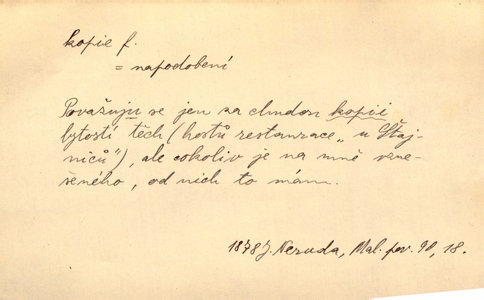 kopie f.
= napodobení
Považuju se jen za chudou kopii
bytostí těch (hostů restaurace „u Štaj-
niců“), ale cokoliv je na mně vzne-
šeného, od nich to mám.
1878 J. Neruda, Mal. pov. 90, 18.